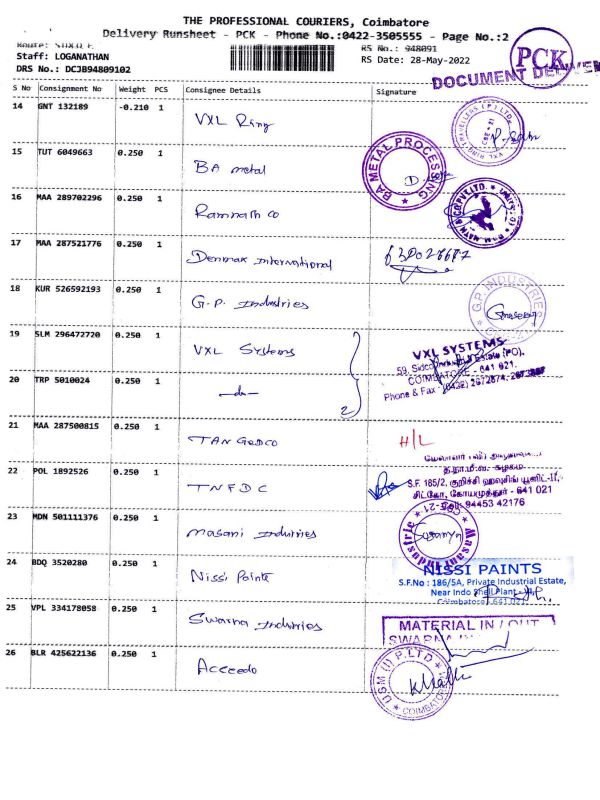 THE PROFESSIONAL COURIERS, Coimbatore
Delivery Runsheet - PCK - Phone No.:0422-3505555 - Page No.:2
RS No.: 948091
Staff: LOGANATHAN
RS Date: 28-May-2022
DRS No.: DCJB94809102
PCK
DOCUMENT
S No Consignment No Weight PCS Consignee Details Signature
14 GNT 132189 -0.210 1 VXL Ring
15 TUT 6049663 0.250 1 BA metal
BA METAL PROCESSING
16 MAA 289702296 0.250 1 Ramnath co
17 MAA 287521776 0.250 1 Denmax International
18 KUR 526592193 0.250 1 G.P. Industries
G.P. INDUSTRIE
19 SLM 296472720 0.250 1 VXL Systems
VXL SYSTEMS
59, Sidco Industrial Estate (PO),
COIMBATORE - 641 021.
Phone & Fax
20 TRP 5010024 0.250 1 -do-
2
21 MAA 287500815 0.250 1 TANGEDCO H/L
22 POL 1892526 0.250 1 TNFDC
த.நா.மீ.வ. கழகம்
S.F. 185/2, குறிச்சி ஹவுசிங் யூனிட்-II,
சிட்கோ, கோயமுத்தூர் - 641 021
94453 42176
23 MDN 501111376 0.250 1 masani Industries
24 BDQ 3520280 0.250 1 Nissi Points
NISSI PAINTS
S.F.No : 186/5A, Private Industrial Estate,
Near Indo Shell Plant
Coimbatore - 641 021.
25 VPL 334178058 0.250 1 Swarna Industries
MATERIAL IN / OUT
SWARNA
26 BLR 425622136 0.250 1 Acceedo
USM (I) P.LTD
COIMBATORE